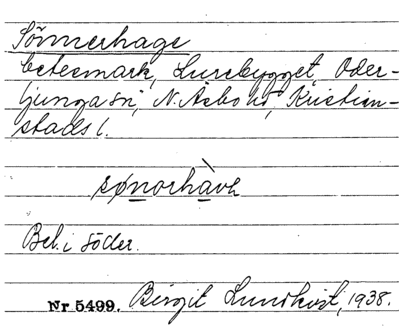 Sönnerhage
betesmark, Lurebygget, Oder-
ljunga sn, N. Åsbo hd, Kristian-
stads l.
sønorhàvh
Bel. i söder.
Nr 5499. Birgit Lundkvist, 1938.